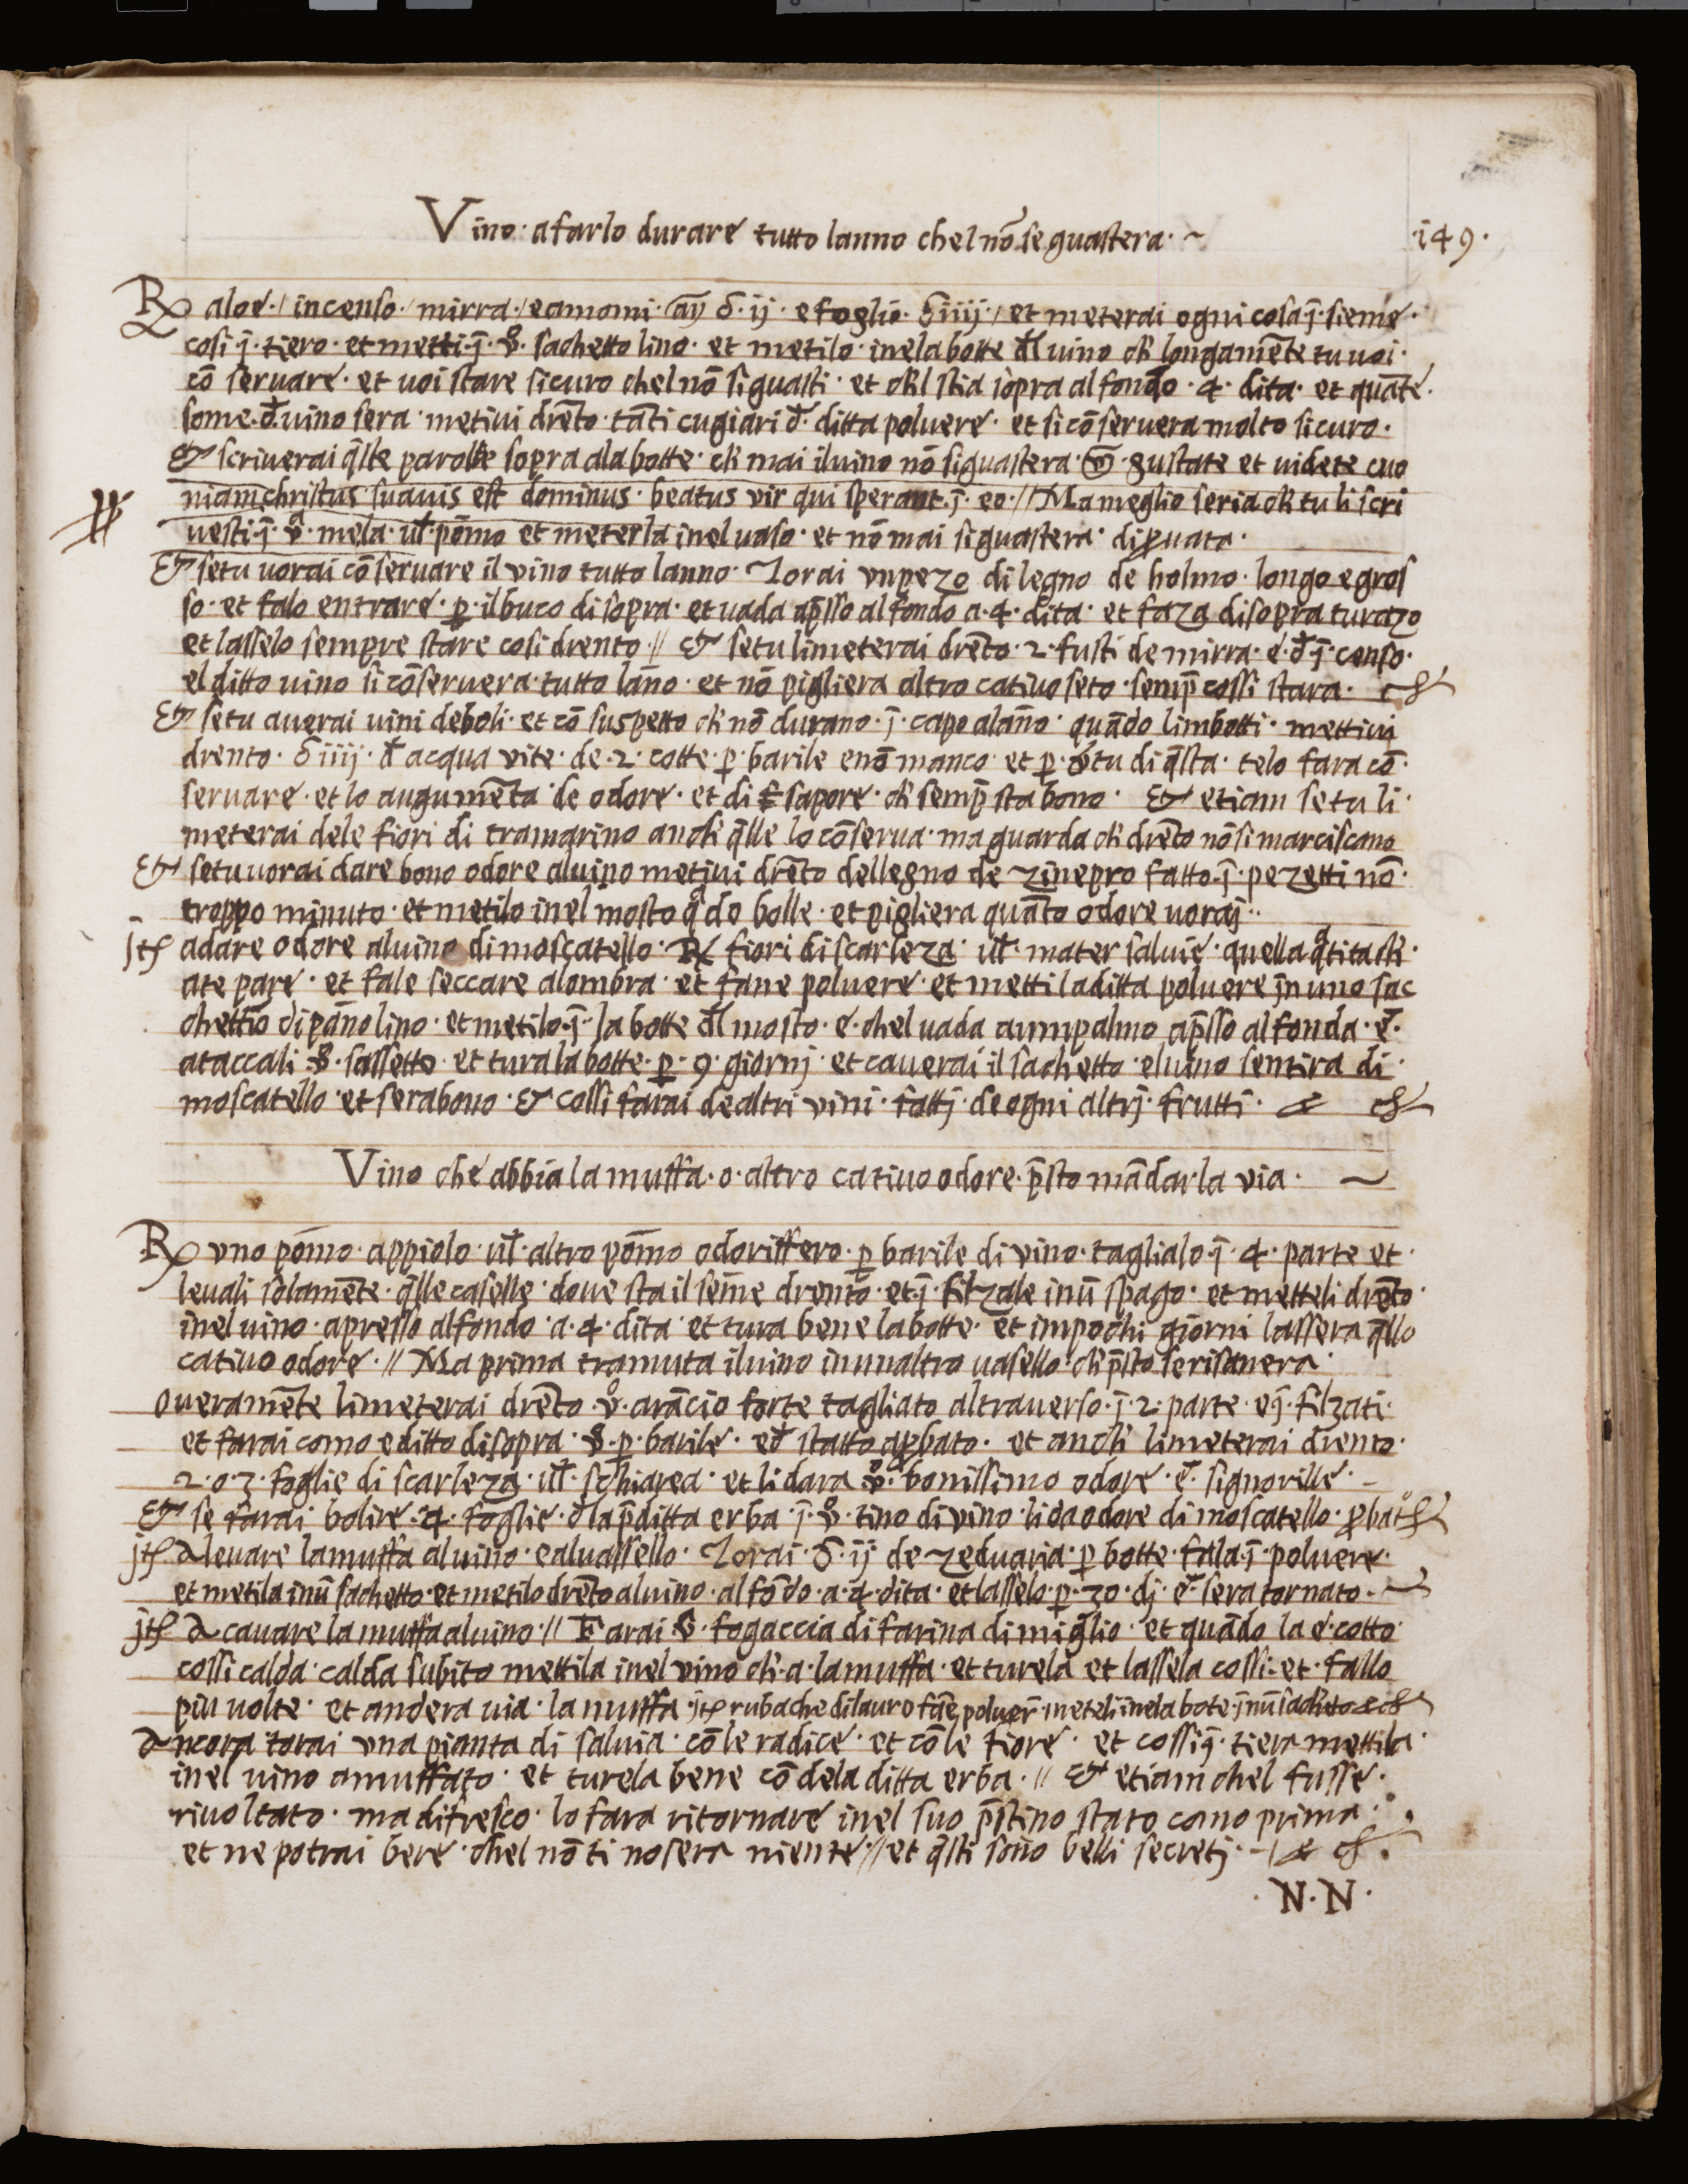 Vino · a farlo durare tutto lanno chel nō se guastera · ~
·149·
℞ aloe · / incenso · mirra · / e amomi · aÿ ʒ · ij · e foglio · ʒ iiij · / et meterai ogni cosa ī · sieme ·
cosi ī · tiero · et metti · ī · vᵒ · sachetto lino · et metilo · inela botte đl uino ch' longamēte tu uoi ·
cō seruare · et uoi stare sicuro chel nō si guasti · et ch'l stia sopra al fondo · 4 · dita · et quāte ·
some · đ · uino sera · metiui drēto · tāti cugiari đ · ditta poluere · et si cō seruera molto sicuro ·
Et scriuerai q̄lle parolle sopra ala botte · ch' mai il uino nō si guastera · gustate et uidete cuo
niam christus suauis est dominus · beatus vir qui sperant · ī · eo · // Ma meglio seria ch' tu li scri
uesti · ī · vᵃ · mela · ul̄ · pōmo et meterla inel uaso · et nō mai si guastera · di ꝓuata ·
Et se tu uorai cō seruare il vino tutto lanno · Torai vn pezo di legno de holmo · longo e gros
so · et falo entrare · ꝑ · il buco di sopra · et uada ap̄sso al fondo a · 4 · dita · et faza di sopra turazo
et lasselo sempre stare cosi drento // Et se tu li meterai drēto · 2 · fusti de mirra · e · đ ī · censo ·
el ditto uino si cōseruera · tutto lan̄o · et nō pigliera altro catiuo seto · semp̄ cossi stara ·
Et se tu auerai uini deboli · et cō suspetto ch' nō durano · ī · capo alan̄o · quādo limbotti · mettiui
drento · ʒ iiij · đ acqua vite · de · 2 · cotte · ꝑ · barile e nō manco · et ꝑ · v̄tu di q̄sta · telo fara cō ·
seruare · et lo augumēta de odore · et di sapore · ch' semp̄ sta bono · Et etiam se tu li ·
meterai dele fiori di tramarino anch' q̄lle lo cōserua · ma guarda ch' drēto nō si marciscano
Et se tu uorai dare bono odore al uino metiui drēto del legno de zinepro fatto · ī · pezetti nō ·
troppo minuto · et metilo inel mosto qᵃdo bolle · et pigliera quāto odore uoraj ·
jtē adare odore al uino di moscatello · ℞ fiori di scarleza · ul̄ · mater saluie · quella qᵃtita ch' ·
ate pare · et fale seccare alombra · et fane poluere · et metti la ditta poluere īn uno sac
chettō di pan̄o lino · et metilo · ī · la botte đl mosto · e · chel uada aunnpalmo ap̄sso al fonda · e ·
ataccali · vᵒ · sassetto · et tura la botte · ꝑ · 9 · giornj · et cauerai il sachetto · el uino sentira di ·
moscatello · et sera bono · Et cossi farai de altri vini · fattj · de ogni altrj · frutti ·
Vino che abbia la muffa · o · altro catiuo odore · p̄sto mādarla via · ~
℞ vno pōmo · appiolo · ul̄ · altro pōmo odoriffero · ꝑ barile di vino · taglialo · ī · 4 · parte et ·
leuali solamēte · q̄lle caselle · doue sta il seme drento · et · ī · filzale inū spago · et metteli drēto ·
inel uino · apresso al fondo · a · 4 · dita · et tura bene la botte · et impochi giorni lassera q̄llo
catiuo odore · // Ma prima tramuta il uino inunaltro uasello · ch' p̄sto se risanera ·
Oueramēte li meterai drēto · vᵒ · arācio forte tagliato al trauerso · ī · 2 · parte · e ī · filzati ·
et farai como e ditto di sopra · vᵒ · ꝑ · barile · e đ statto aꝓbato · et anch' li meterai drento ·
2 · o · 3 · foglie di scarleza · ul̄ · schiarea · et li dara vᵒ · bonissimo odore · e · signorille · –
Et se farai bolire · 4 · foglie · đ la p̄ditta erba · ī · vᵒ · tino di vino · li da odore di moscatello · ꝓbatᵒ
jtē A leuare la muffa al uino · e al uassello · Torai · ʒ · ij de zeduaria · ꝑ botte · fala · ī · poluere ·
et metila inū sachetto · et metilo drēto al uino · al fōdo · a · 4 · dita · et lasselo · ꝑ · 30 · dj · e · sera tornato · ~
jtē A cauare la muffa al uino // Farai vᵃ · fogaccia di farina di miglio · et quādo la e · cotto ·
cossi calda · calda subito mettila inel vino ch' · a · la muffa · et turela et lassela cossi · et · fallo
piu uolte · et andera uia · la muffa · jtē rubache di lauro fāe poluer̄ · meteli inela bote īnū sachetto
Ancora torai vna pianta di saluia · cō le radice · et cō le fiore · et cossi ī · tiera mettila ·
inel uino amuffato · et turela bene cō dela ditta erba · // Et etiam chel fusse ·
riuoltato · ma di fresco · lo fara ritornare inel suo p̄stino stato como prima ·
et ne potrai bere · chel nō ti nosera niente · // et q̄sti sono belli secretj ·
· N · N ·